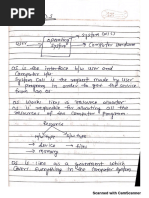 System Call()
User
Operating
System
Computer Hardware
OS is the interface b/w user and
Computer h/w
System Call is the request made by User
program in order to get the service
from the OS
OS works like a resource allocator
OS is responsible to allocate all the
resources of the Computer & program
Resource
H/w type
S/w type
→ device
→ files
→ memory
OS is like as a government which
Control everything in the Computer System
Scanned with CamScanner